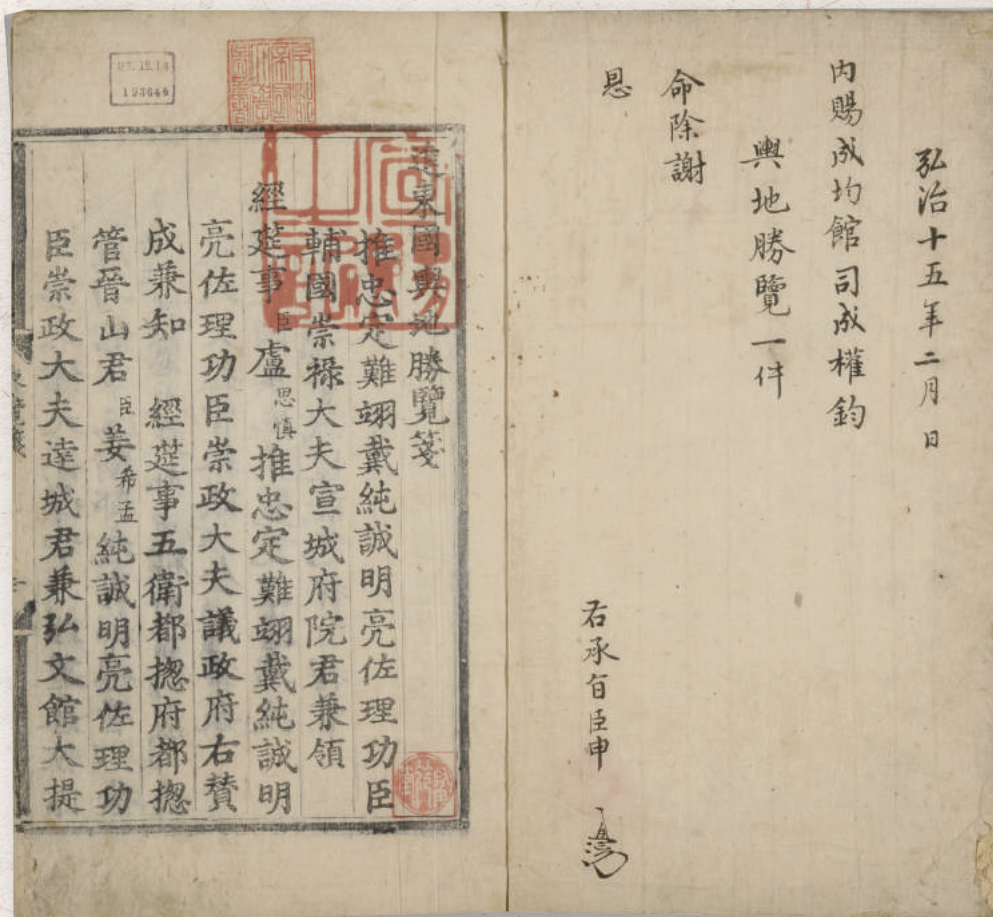 弘治十五年二月 日
內賜成均館司成權鈞
輿地勝覽一件
命除謝
恩
右承旨臣申
進東國輿地勝覽箋
推忠定難翊戴純誠明亮佐理功臣
輔國崇祿大夫宣城府院君兼領
經筵事 臣盧思愼 推忠定難翊戴純誠明
亮佐理功臣崇政大夫議政府右贊
成兼知 經筵事五衛都摠府都摠
管晉山君 臣姜希孟 純誠明亮佐理功
臣崇政大夫達城君兼弘文館大提
193646